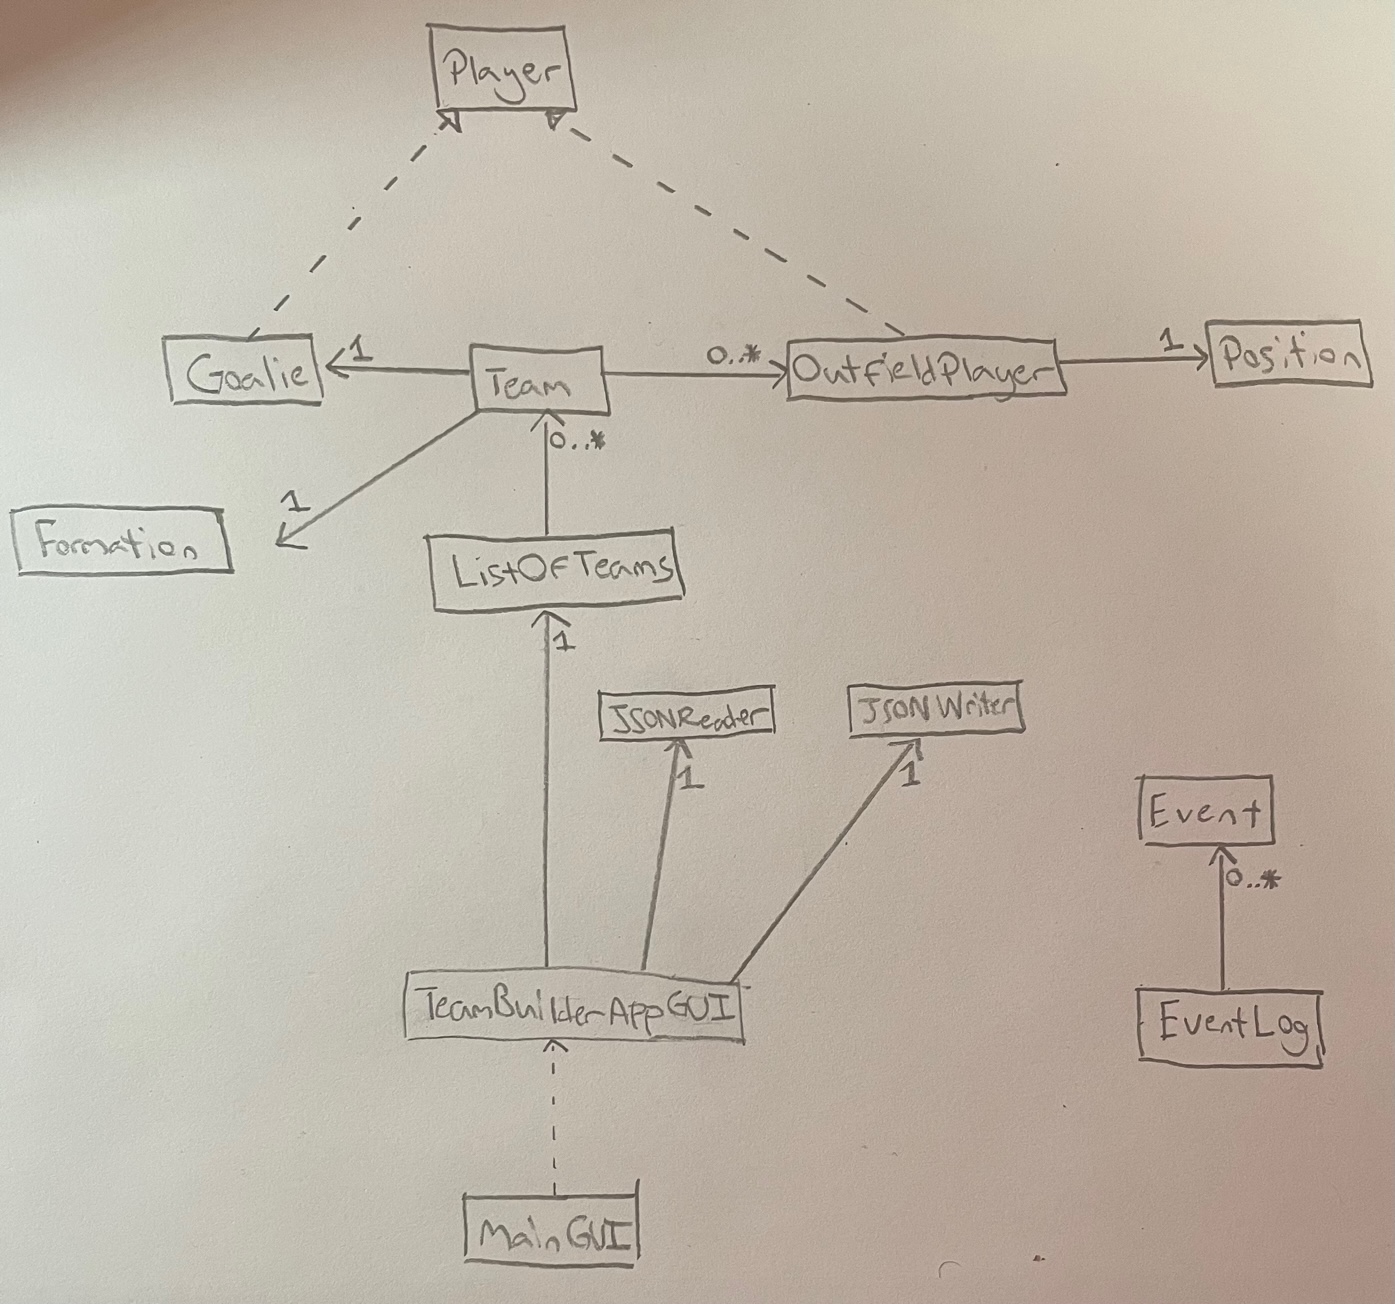 Player
Goalie
1
Team
0..*
OutfieldPlayer
1
Position
0..*
1
Formation
ListOfTeams
1
JSONReader
JSONWriter
1
1
Event
0..*
TeamBuilderAppGUI
EventLog
MainGUI